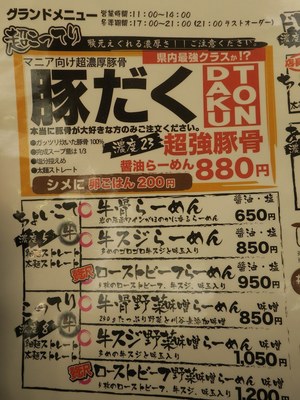 グランドメニュー
営業時間：11:00～16:00
冬期時間：17:00～21:00(21:00ラストオーダー)
超こってり
喉元えぐれる濃厚さ!!ご注意ください
マニア向け超濃厚豚骨
県内最強クラスか!?
豚だく
TON
DAKU
本当に豚骨が大好きな方のみご注文ください。
●ガッツリ炊いた豚骨100%
●肉成スープ量は1/3
●塩分強くめ
●太麺ストレート
濃度23
超強豚骨
醤油らーめん 880円
シメに 卵ごはん 200円
ちょいこて
牛骨らーめん
醤油・塩
650円
牛スジらーめん
醤油・塩
850円
贅沢
ローストビーフらーめん
醤油・塩
950円
こってり
牛骨野菜味噌らーめん
味噌
850円
牛スジ野菜味噌らーめん
味噌
1,050円
贅沢
ローストビーフ野菜味噌らーめん
味噌
1,200円